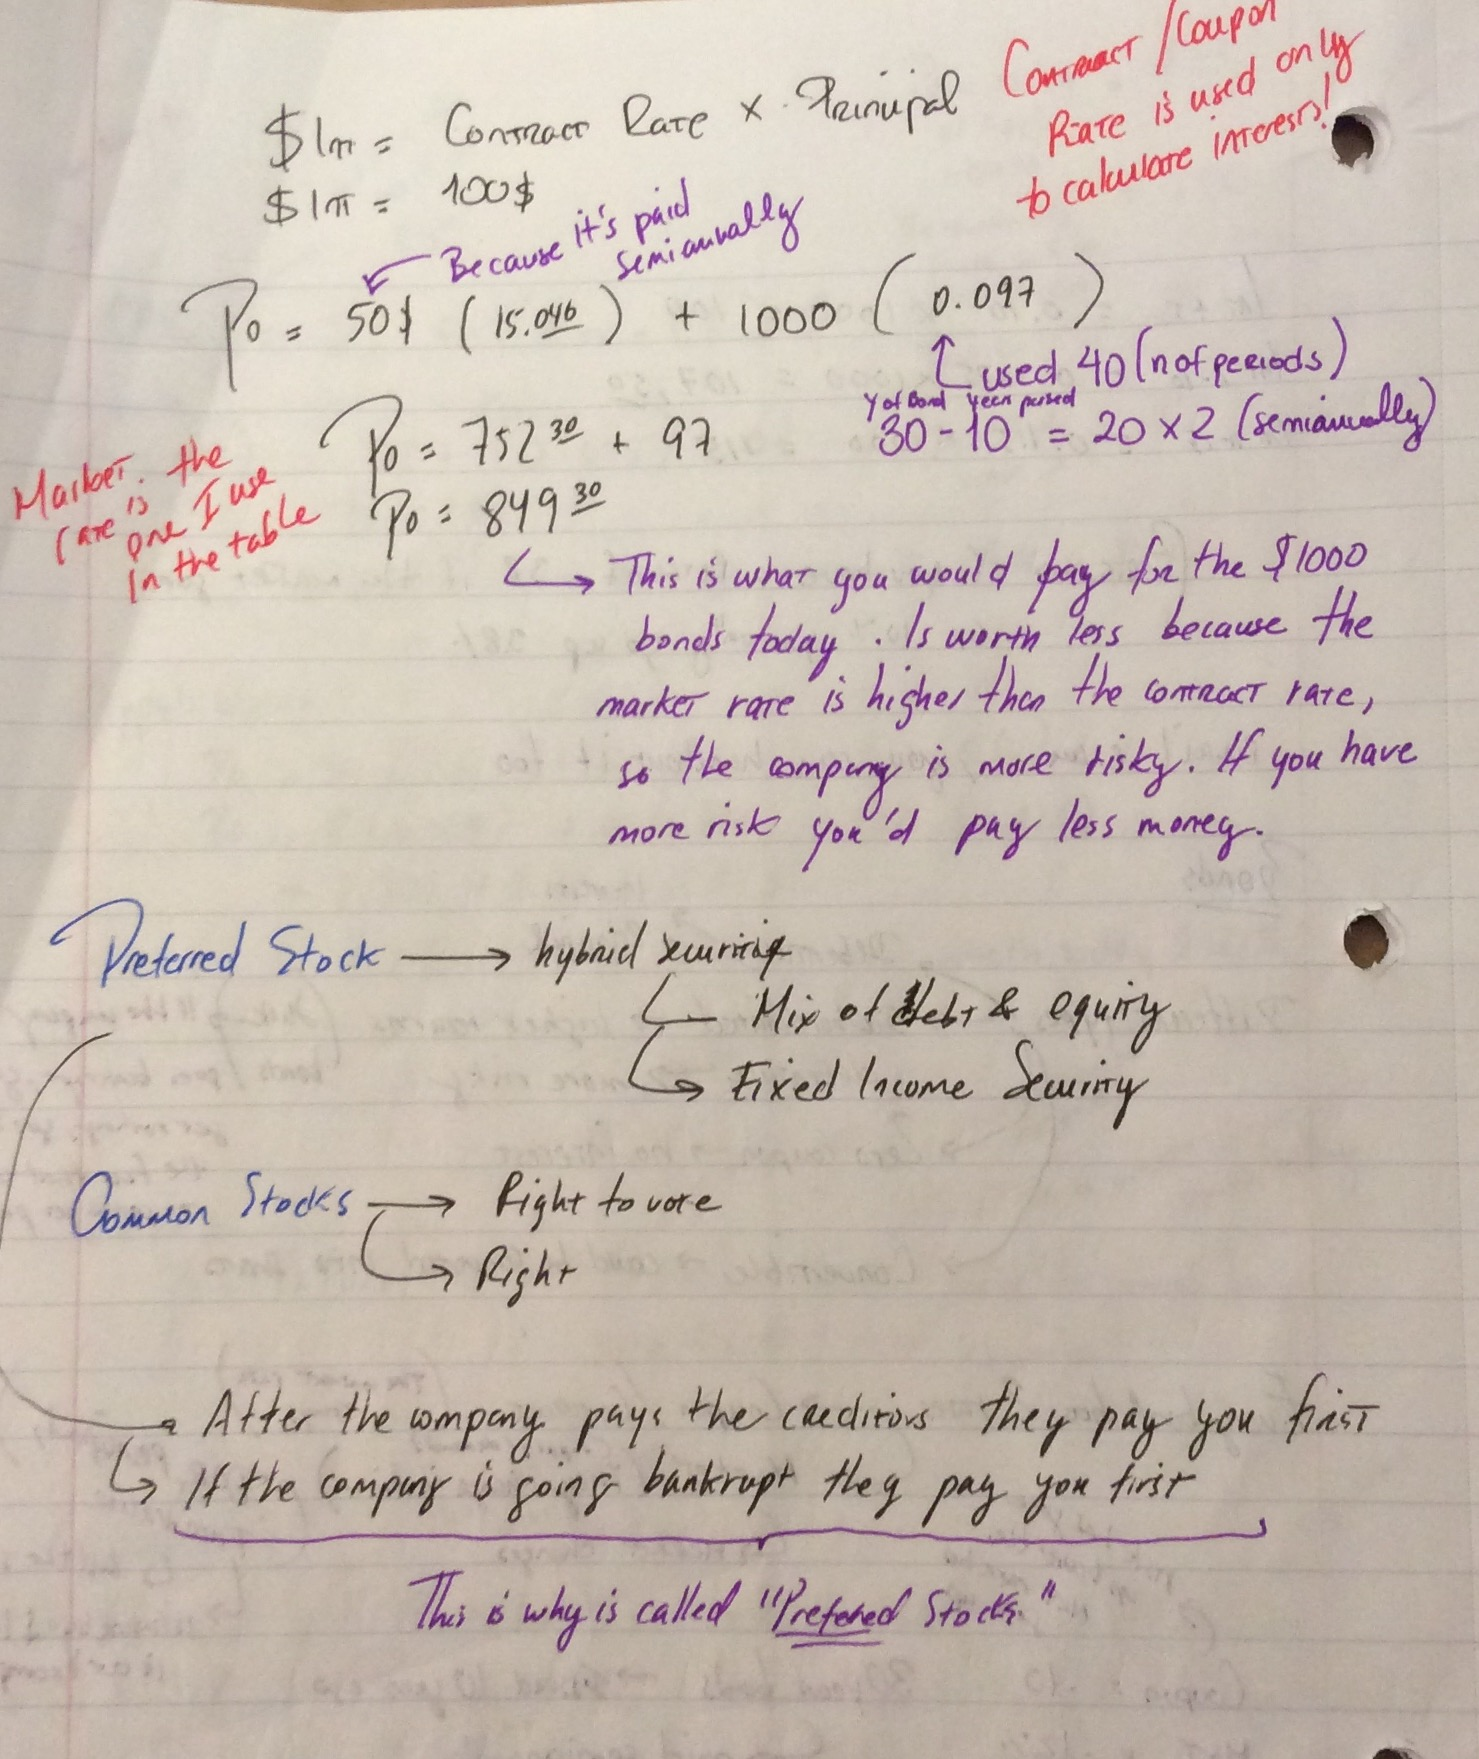 $Int = Contract Rate x Principal
$Int = 100$
Contract/Coupon
Rate is used only
to calculate interests!
Because it's paid
semianually
Po = 50$ (15.046) + 1000 (0.097)
used 40 (n of periods)
Y of Bond Years passed
30 - 10 = 20 x 2 (semianually)
Po = 752 30 + 97
Po = 849 30
Market. the
rate is
one I use
In the table
This is what you would pay for the $1000
bonds today. Is worth less because the
market rate is higher than the contract rate,
so the company is more risky. If you have
more risk you'd pay less money.
Preferred Stock → hybrid security
Mix of debt & equity
Fixed Income Security
Common Stocks → Right to vote
Right
After the company pays the creditors they pay you first
If the company is going bankrupt they pay you first
This is why is called "Preferred Stocks"